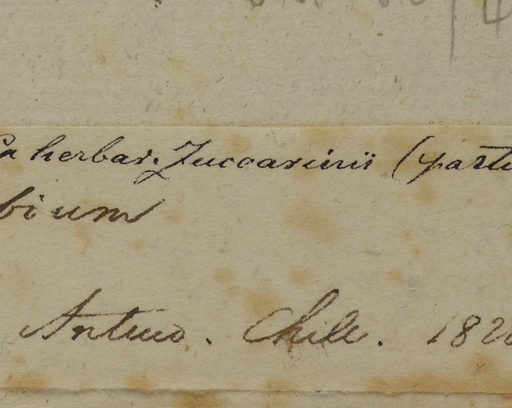 Ex herbar. Zuccarinii (partu
bium
Antuco. Chile. 182